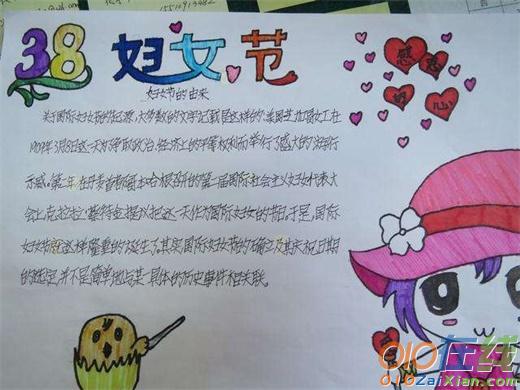 15510913482
38妇女节
感恩的心
妇女节的由来
关于国际妇女节的起源,大多数的文字记载是这样的:美国芝加哥女工在
1909年3月8日这一天为争取政治、经济上的平等权利而举行了盛大的游行
示威。第二年在丹麦首都哥本哈根召开的第一届国际社会主义妇女代表大
会上克拉拉·蔡特金提议把这一天作为国际妇女的节日,于是,国际
妇女节就这样隆重的诞生了,其实国际妇女节的确立及其庆祝日期
的选定,并不是简单地与某一具体的历史事件相关联。
010在线
010ZaiXian.com